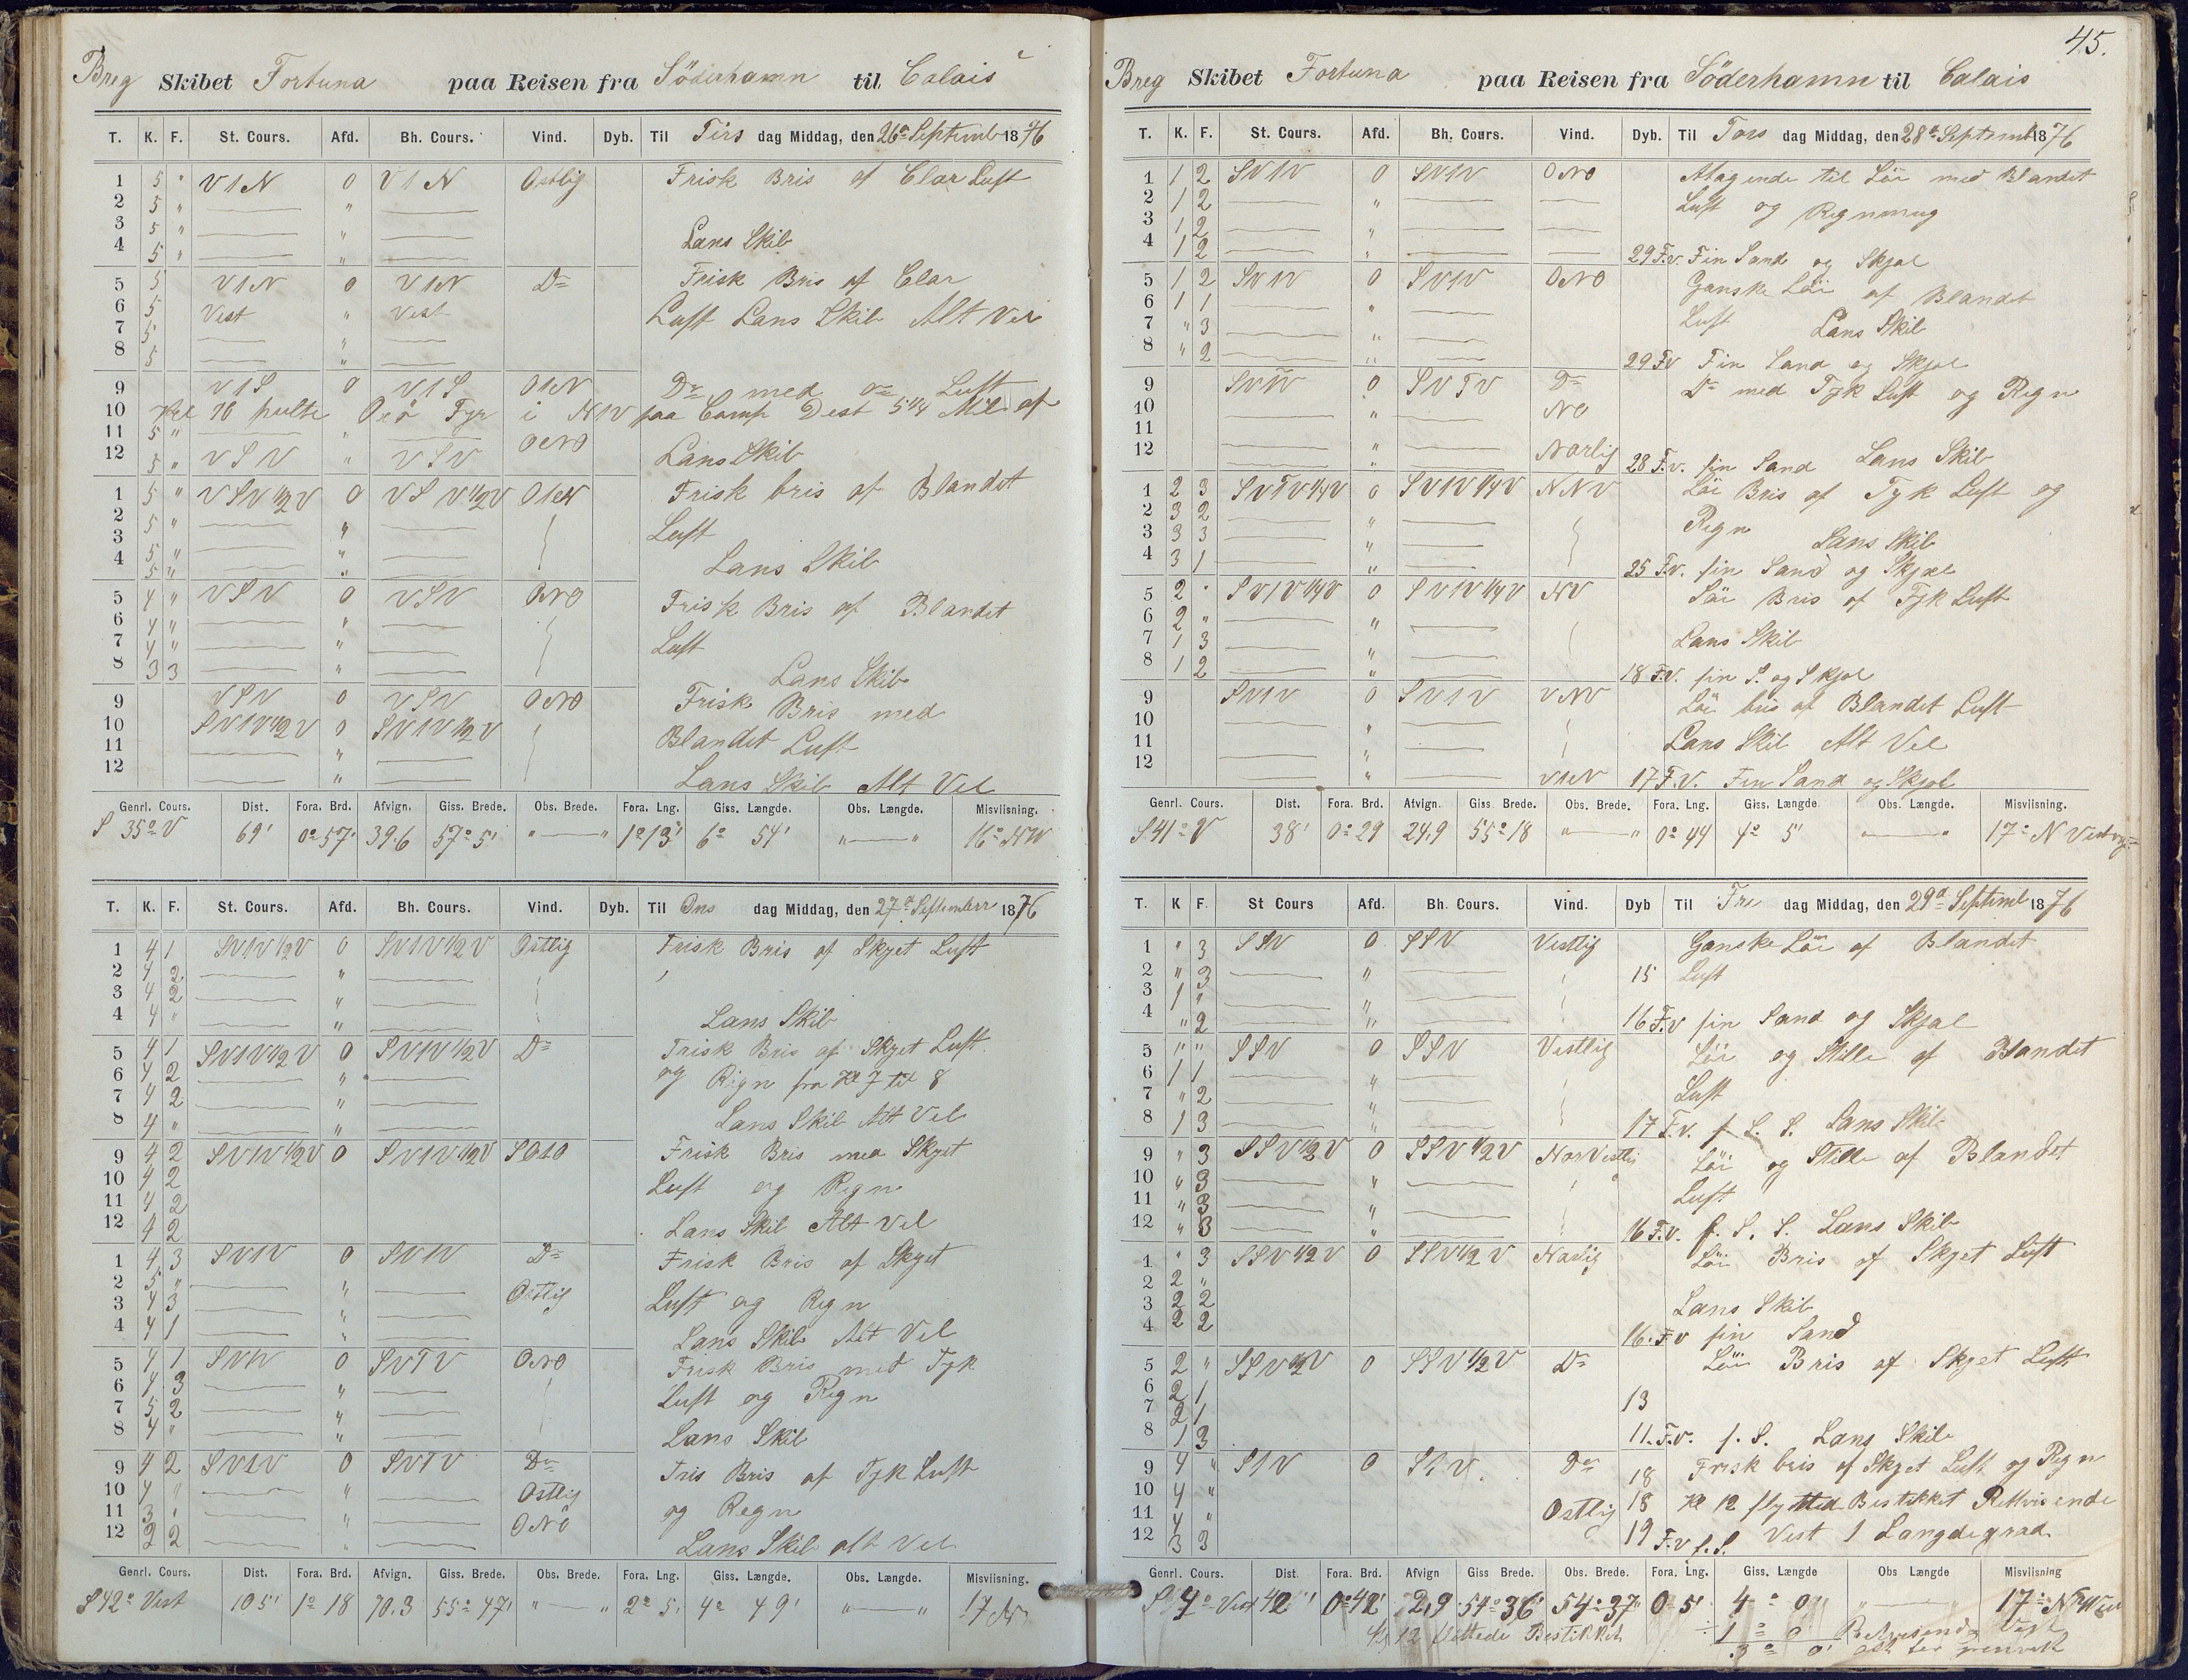 Breg Skibet Fortuna paa Reisen fra Söderhamn til Calais
T. K. F. St. Cours. Afd. Bh. Cours. Vind. Dyb. Til Tirs dag Middag, den 26de Septemb 1876
1 5 " V1N 0 V1N Ostlig Frisk Bris af Clar Luft
2 5 " — " —
3 5 " — " — Lans Skib
4 5 " — " —
5 5 V1N 0 V1N Do Frisk Bris af Clar
6 5 Vest " Vest Luft Lans Skib Alt Vel
7 5 — " —
8 5 — " —
9 V1S 0 V1S O1N Do med do Luft
10 Kl 10 peilte Fyr i NW paa Comp Dest 5 1/4 Mil af
11 5 " — " — ONO
12 5 " VSV " VSV Lans Skib
1 5 " VSV 1/2 V 0 VSV 1/2 V O1N Frisk bris af Blandet
2 5 " — " — Luft
3 5 " — " —
4 5 " — " — Lans Skib
5 4 " VSV 0 VSV ONO Frisk Bris af Blandet
6 4 " — " — Luft
7 4 " — " —
8 3 3 — " — Lans Skib
9 VSV 0 VSV ONO Frisk Bris med
10 SV1V 1/2 V 0 SV1V 1/2 V Blandet Luft
11 — " —
12 — " — Lans Skib Alt Vel
Genrl. Cours. Dist. Fora. Brd. Afvign. Giss. Brede. Obs. Brede. Fora. Lng. Giss. Længde. Obs. Længde. Misviisning.
S 35° V 69' 0° 57' 39.6 57° 5' " — " 1° 13' 6° 54' " — " 16° NW
T. K. F. St. Cours. Afd. Bh. Cours. Vind. Dyb. Til Ons dag Middag, den 27de Septembr 1876
1 4 1 SV1V 1/2 V 0 SV1V 1/2 V Ostlig Frisk Bris af Skyet Luft
2 4 2 — " —
3 4 2 — " —
4 4 " — " — Lans Skib
5 4 1 SV1V 1/2 V 0 SV1V 1/2 V Do Frisk Bris af Skyet Luft
6 4 2 — " — og Rign fra Kl 7 til 8
7 4 2 — " —
8 4 " — " — Lans Skib Alt Vel
9 4 2 SV1V 1/2 V 0 SV1V 1/2 V SO1O Frisk Bris med Skyet
10 4 2 Luft og Regn
11 4 2
12 4 2 Lans Skib Alt Vel
1 4 3 SV1V 0 SV1V Do Frisk Bris af Skyet
2 5 " — " — Ostlig Luft og Regn
3 4 3 — " —
4 4 1 — " — Lans Skib Alt Vel
5 4 1 SV1V 0 SVTV ONO Frisk Bris med Tyk
6 4 3 — " — Luft og Regn
7 5 2 — " —
8 4 " — " — Lans Skib
9 4 2 SV1V 0 SVTV Do Fris Bris af Tyk Luft
10 4 " — " — Ostlig og Regn
11 3 " — " — ONO
12 2 2 — " — Lans Skib alt Vel
Genrl. Cours. Dist. Fora. Brd. Afvign. Giss. Brede. Obs. Brede. Fora. Lng. Giss. Længde. Obs. Længde. Misviisning.
S 42° Vest 105' 1° 18 70.3 55° 47' " — " 2° 5' 4° 49' " — " 17 N
45.
Breg Skibet Fortuna paa Reisen fra Söderhamn til Calais
T. K. F. St. Cours. Afd. Bh. Cours. Vind. Dyb. Til Tors dag Middag, den 28de Septemb 1876
1 1 2 SV1V 0 SV1V ONO Atagende til Löi med Blandet
2 1 2 — " — — Luft og Regn
3 1 2 — " — —
4 1 2 — " — — 29 F.v. Fin Sand og Skjæl
5 1 2 SV1V 0 SV1V ONO Ganske Löi af Blandet
6 1 1 — " — Luft
7 " 3 — " — Lans Skib
8 " 2 — " — 29 Fv Fin Sand og Skjæl
9 SV1V 0 SVTV Do Do med Tyk Luft og Regn
10 — " — NO
11
12 — " — Norlig 28 F.v. fin Sand Lans Skib
1 2 3 SVTV 1/4 V 0 SV1V 1/4 V NNV Löi Bris af Tyk Luft og
2 3 2 — " — Regn
3 3 3 — " — Lans Skib
4 3 1 — " — 25 F.v. fin Sand og Skjæl
5 2 " SV1V 1/4 V 0 SV1V 1/4 V NV Löi Bris af Tyk Luft
6 2 " — " —
7 1 3 — " — Lans Skib
8 1 2 — " — 18 F.V. fin S. og Skjæl
9 SV1V 0 SV1V VNV Löi bris af Blandet Luft
10 — " —
11 — " — Lans Skib Alt Vel
12 — " — V1N 17 F.V. Fin Sand og Skjæl
Genrl. Cours. Dist. Fora. Brd. Afvign. Giss. Brede. Obs. Brede. Fora. Lng. Giss. Længde Obs. Længde. Misviisning.
S 41° V 38' 0° 29 24,9 55° 18 " — " 0° 44 4° 5' " — " 17° N Vest
T. K F. St Cours Afd. Bh. Cours. Vind. Dyb Til Fre dag Middag, den 29de Septemb 1876
1 " 3 SSV 0 SSV Vestlig Ganske Löi af Blandet
2 " 3 — " — 15 Luft
3 1 " — " —
4 " 2 — " — 16 F.v fin Sand og Skjæl
5 " " SSV 0 SSV Vestlig Löi og Stille af Blandet
6 1 1 — " — Luft
7 " 2 — " —
8 1 3 — " — 17 F.v. f. S. S. Lans Skib
9 " 3 SSV 1/2 V 0 SSV 1/2 V Nor Vestlig Löi og Stille af Blandet
10 " 3 — " — Luft
11 " 3 — " —
12 " 3 — " — 16 F.v. f. S. S. Lans Skib
1 " 3 SSV 1/2 V 0 SSV 1/2 V Norlig Löi Bris af Skyet Luft
2 2 "
3 2 2 Lans Skib
4 2 2 16. F.v fin Sand
5 2 " SSV 1/2 V 0 SSV 1/2 V Do Löi Bris af Skyet Luft
6 2 1 13
7 2 1
8 1 3 11. F.v. f. S. Lans Skib
9 4 " S1V 0 S1V. Do 18 Frisk bris af Skyet Luft og Regn
10 4 " Ostlig 18 Kl 12 flytted Bestikket Retvisende
11 4 "
12 3 3 19 F.v f.S. Vest 1 Længdegrad
Genrl. Cours. Dist Fora. Brd. Afvign Giss Brede. Obs. Brede. Fora. Lng. Giss. Længde Obs Længde. Misviisning
S 4° Vest 42' 0° 42' 2,9 54° 36' 54° 37' 0° 5' 4° 0' " — " 17° N W
Kl 12 flttede Bestikket ÷ 1° 0 Retvisende Vest
3° 0'